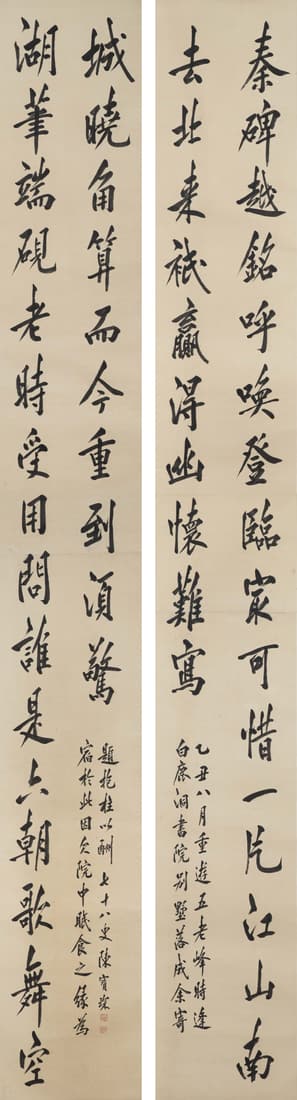 秦碑越銘呼喚登臨冣可惜一片江山南
去北来祇贏得幽懷難寫
乙丑八月重遊五老峰時逢
白鹿洞書院別墅落成余寄
湖筆端硯老時受用問誰是六朝歌舞空
城曉角算而今重到須驚
宿於此因久院中職食之祿為
題抱柱以酬 七十八叟陳寳琛